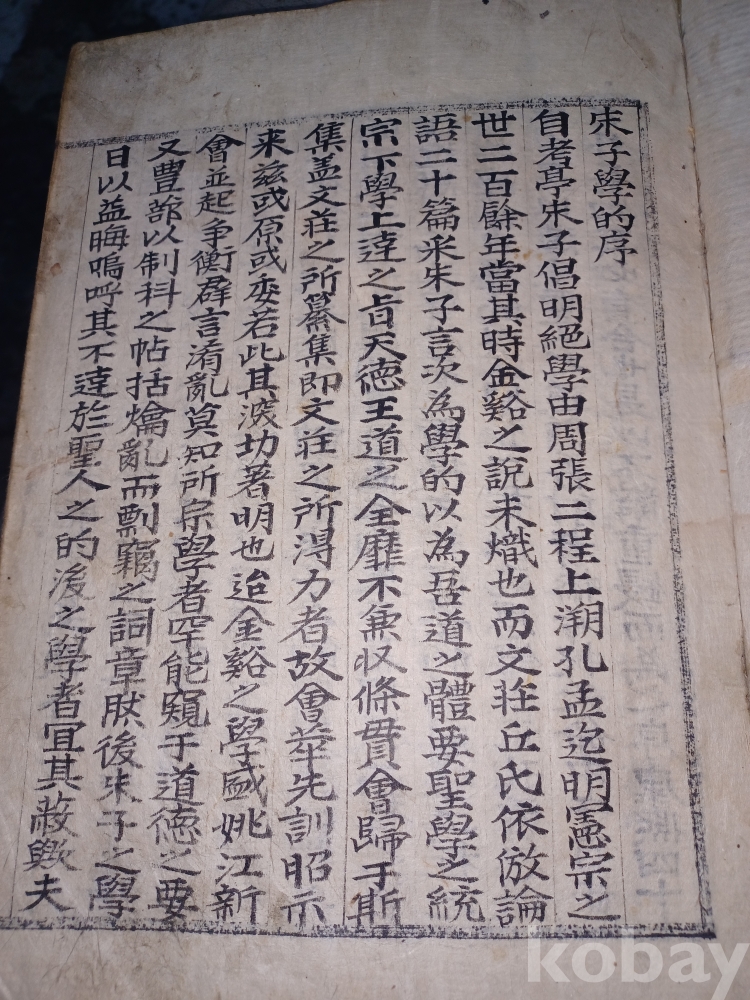 朱子學的序
自考亭朱子倡明絕學由周張二程上溯孔孟迄明憲宗之
世二百餘年當其時金谿之說未熾也而文莊丘氏依倣論
語二十篇采朱子言次為學的以為吾道之體要聖學之統
宗下學上達之旨天德王道之全靡不兼収條貫會歸于斯
集盖文莊之所纂集即文莊之所淂力者故會萃先訓昭示
来茲或原或委若此其深功著明也迨金谿之學盛姚江新
會並起爭衡群言淆亂莫知所宗學者罕能窺于道德之要
又豊蔀以制科之帖括爚亂而剽竊之詞章肰後朱子之學
日以益晦嗚呼其不達於聖人之的後之學者宜其蔽歟夫
kobay